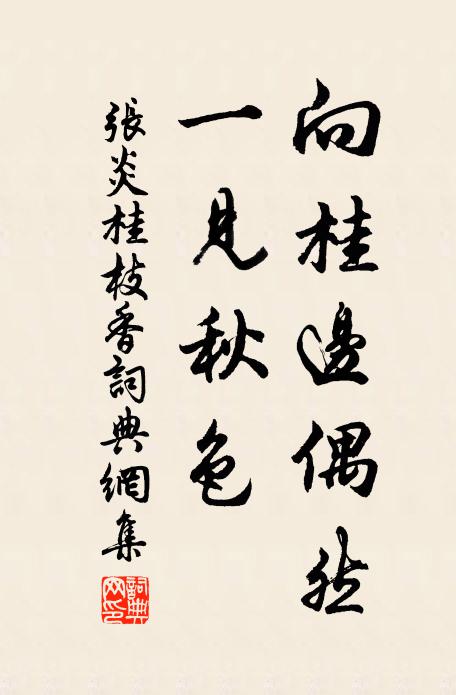 向桂邊偶然
一見秋色
張炎桂枝香詞典網集
詞典網印